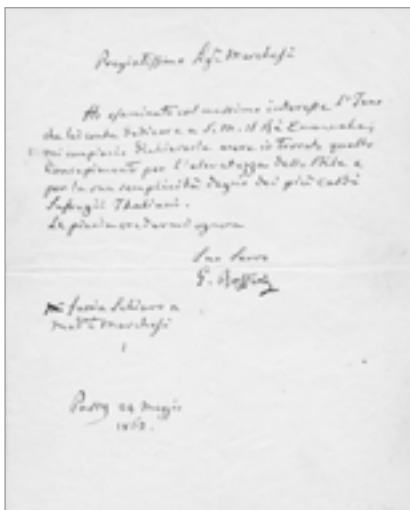 Pregiatissimo Sig. Marchesi
Ho esaminato col massimo interesse l'Inno
che lei conta dedicare a S. M. il Rè Emanuele;
mi compiaccio dichiararle avere io trovato questo
Concepimento per l'elevatezza dello Stile e
per la sua semplicità degno dei più caldi
Suffragii Italiani.
La piacimi credermi ognora
Suo Servo
G. Rossini
Marchesi
Passy 24 Maggio